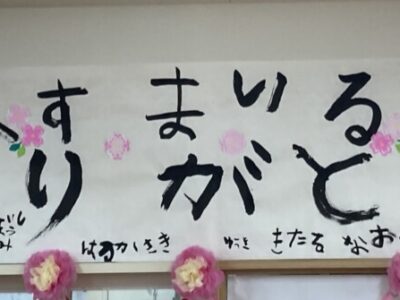 すまいる
りがと
はるかさき ゆうと きたる なお